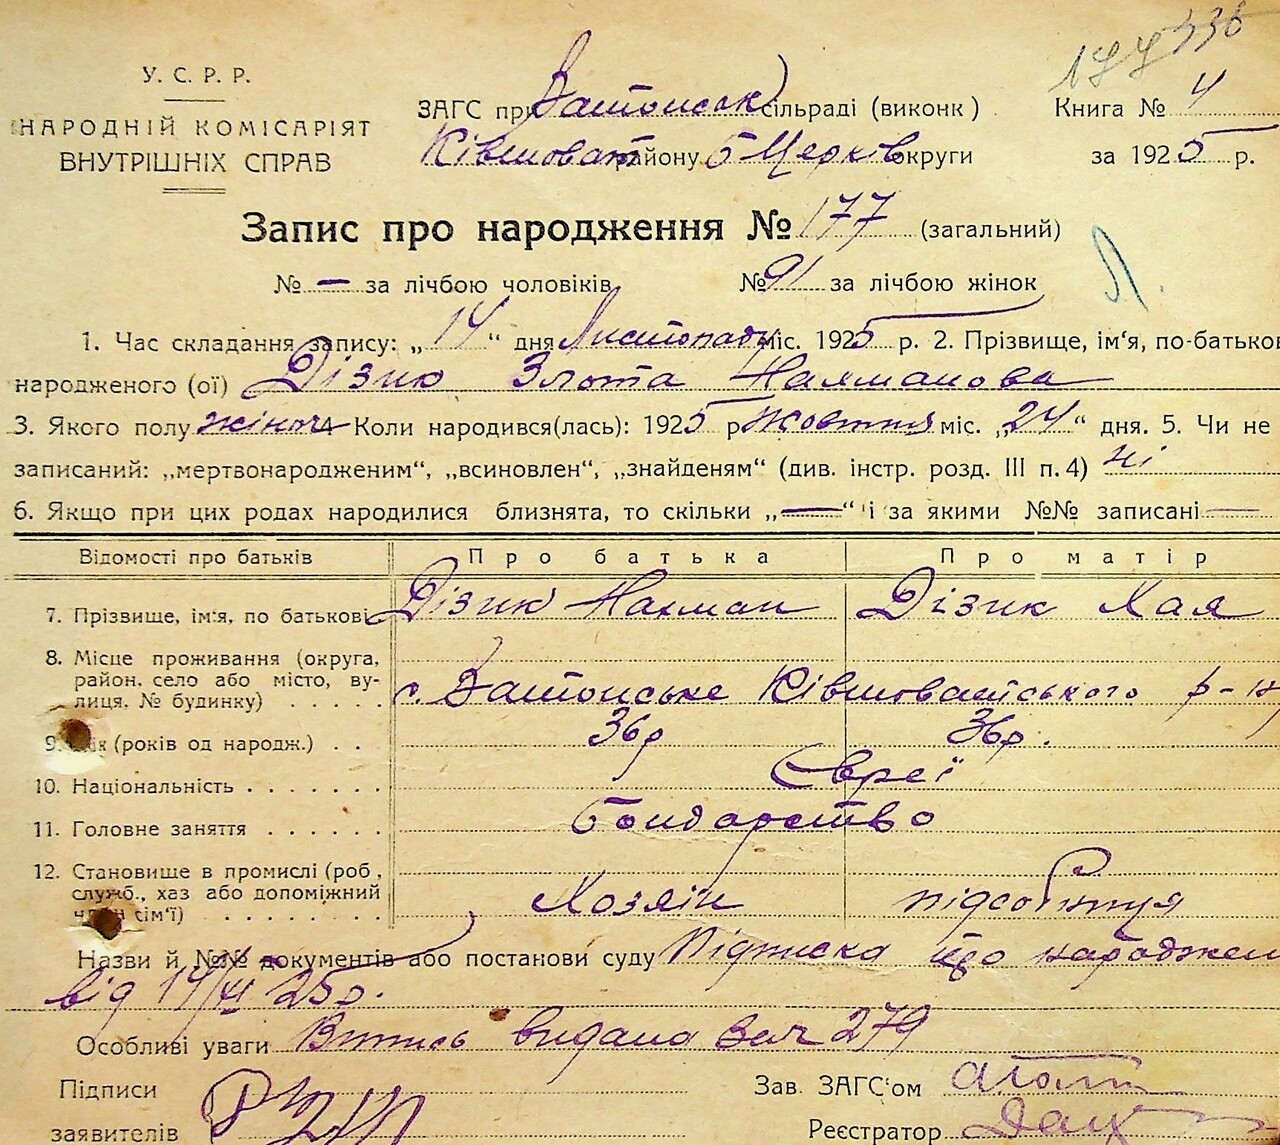 177 336
У. С. Р. Р.
НАРОДНІЙ КОМІСАРІЯТ
ВНУТРІШНІХ СПРАВ
ЗАГС при Затонськ сільраді (виконк )
Книга № 4
Ківшоват району Б Церков округи
за 1925 р.
Запис про народження № 177 (загальний)
№ — за лічбою чоловіків № 91 за лічбою жінок
Л.
1. Час складання запису: „ 14 “ дня Листопаду міс. 1925 р. 2. Прізвище, ім‘я, по-батькові
народженого (ої) Дізик Злота Нахманова
3. Якого полу жіноч 4 Коли народився(лась): 1925 р Жовтня міс. „ 24 “ дня. 5. Чи не
записаний: „мертвонародженим“, „всиновлен“, „знайденям“ (див. інстр. розд. III п. 4) ні
6. Якщо при цих родах народилися близнята, то скільки „ — “ і за якими №№ записані —
Відомості про батьків Про батька Про матір
7. Прізвище, ім‘я, по батькові Дізик Нахман Дізик Хая
8. Місце проживання (округа,
район, село або місто, ву-
лиця, № будинку) . . . . . с. Затонське Ківшоватського р-ну
9. Вік (років од народж.) . . . 36р 36р.
10. Національність . . . . . . . Євреї
11. Головне заняття . . . . . . Бондарство
12. Становище в промислі (роб ,
служб., хаз або допоміжний
член сім‘ї) . . . . . . . . Хозяїн підсобниця
Назви й №№ документів або постанови суду Підписка що народжен
від 14/XI 25р.
Особливі уваги Витись видана за № 279
Підписи
заявителів
Зав. ЗАГС‘ом
Реєстратор